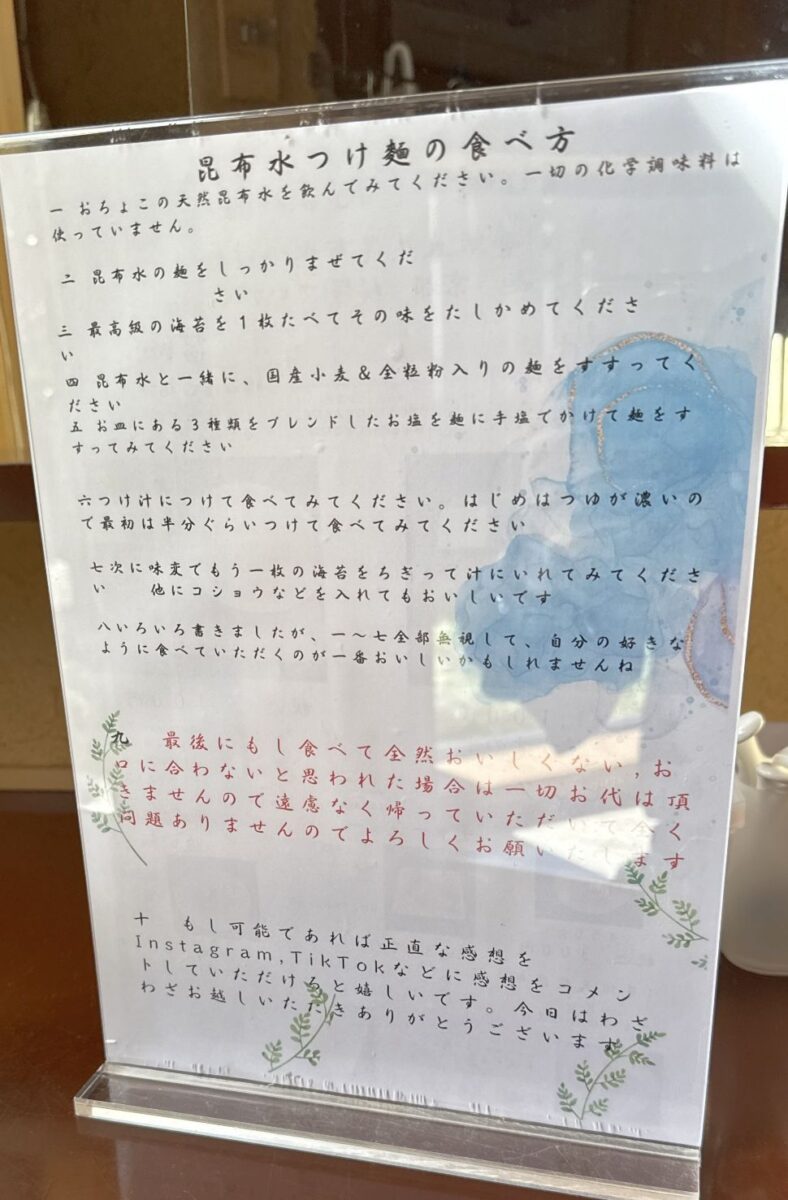 昆布水つけ麺の食べ方
一 おちょこの天然昆布水を飲んでみてください。一切の化学調味料は
使っていません。
二 昆布水の麺をしっかりまぜてくだ
さい
三 最高級の海苔を1枚たべてその味をたしかめてくださ
い
四 昆布水と一緒に、国産小麦&全粒粉入りの麺をすすってく
ださい
五 お皿にある3種類をブレンドしたお塩を麺に手塩でかけて麺をす
すってみてください
六つけ汁につけて食べてみてください。はじめはつゆが濃いの
で最初は半分ぐらいつけて食べてみてください
七次に味変でもう一枚の海苔をちぎって汁にいれてみてくださ
い 他にコショウなどを入れてもおいしいです
八いろいろ書きましたが、一〜七全部無視して、自分の好きな
ように食べていただくのが一番おいしいかもしれませんね
九 最後にもし食べて全然おいしくない,お
口に合わないと思われた場合は一切お代は頂
きませんので遠慮なく帰っていただいて全く
問題ありませんのでよろしくお願いいたします
十 もし可能であれば正直な感想を
Instagram,TikTokなどに感想をコメン
トしていただけると嬉しいです。今日はわざ
わざお越しいただきありがとうございます